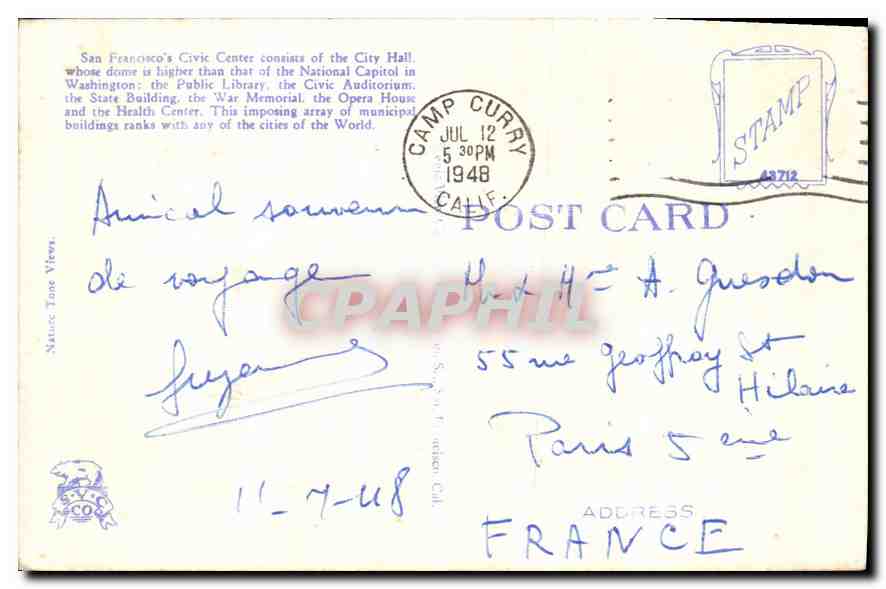 San Francisco's Civic Center consists of the City Hall,
whose dome is higher than that of the National Capitol in
Washington; the Public Library, the Civic Auditorium,
the State Building, the War Memorial, the Opera House
and the Health Center. This imposing array of municipal
buildings ranks with any of the cities of the World.
CAMP CURRY
JUL 12
5 30 PM
1948
CALIF.
STAMP
43712
POST CARD
Amical souvenir
de voyage
Suzanne
11-7-48
M. & Mme A. Guesdon
55 rue Geoffroy St
Hilaire
Paris 5ème
ADDRESS
FRANCE
Nature Tone Views.
S.V.C.
CO
Francisco, Cal.
CPAPHIL